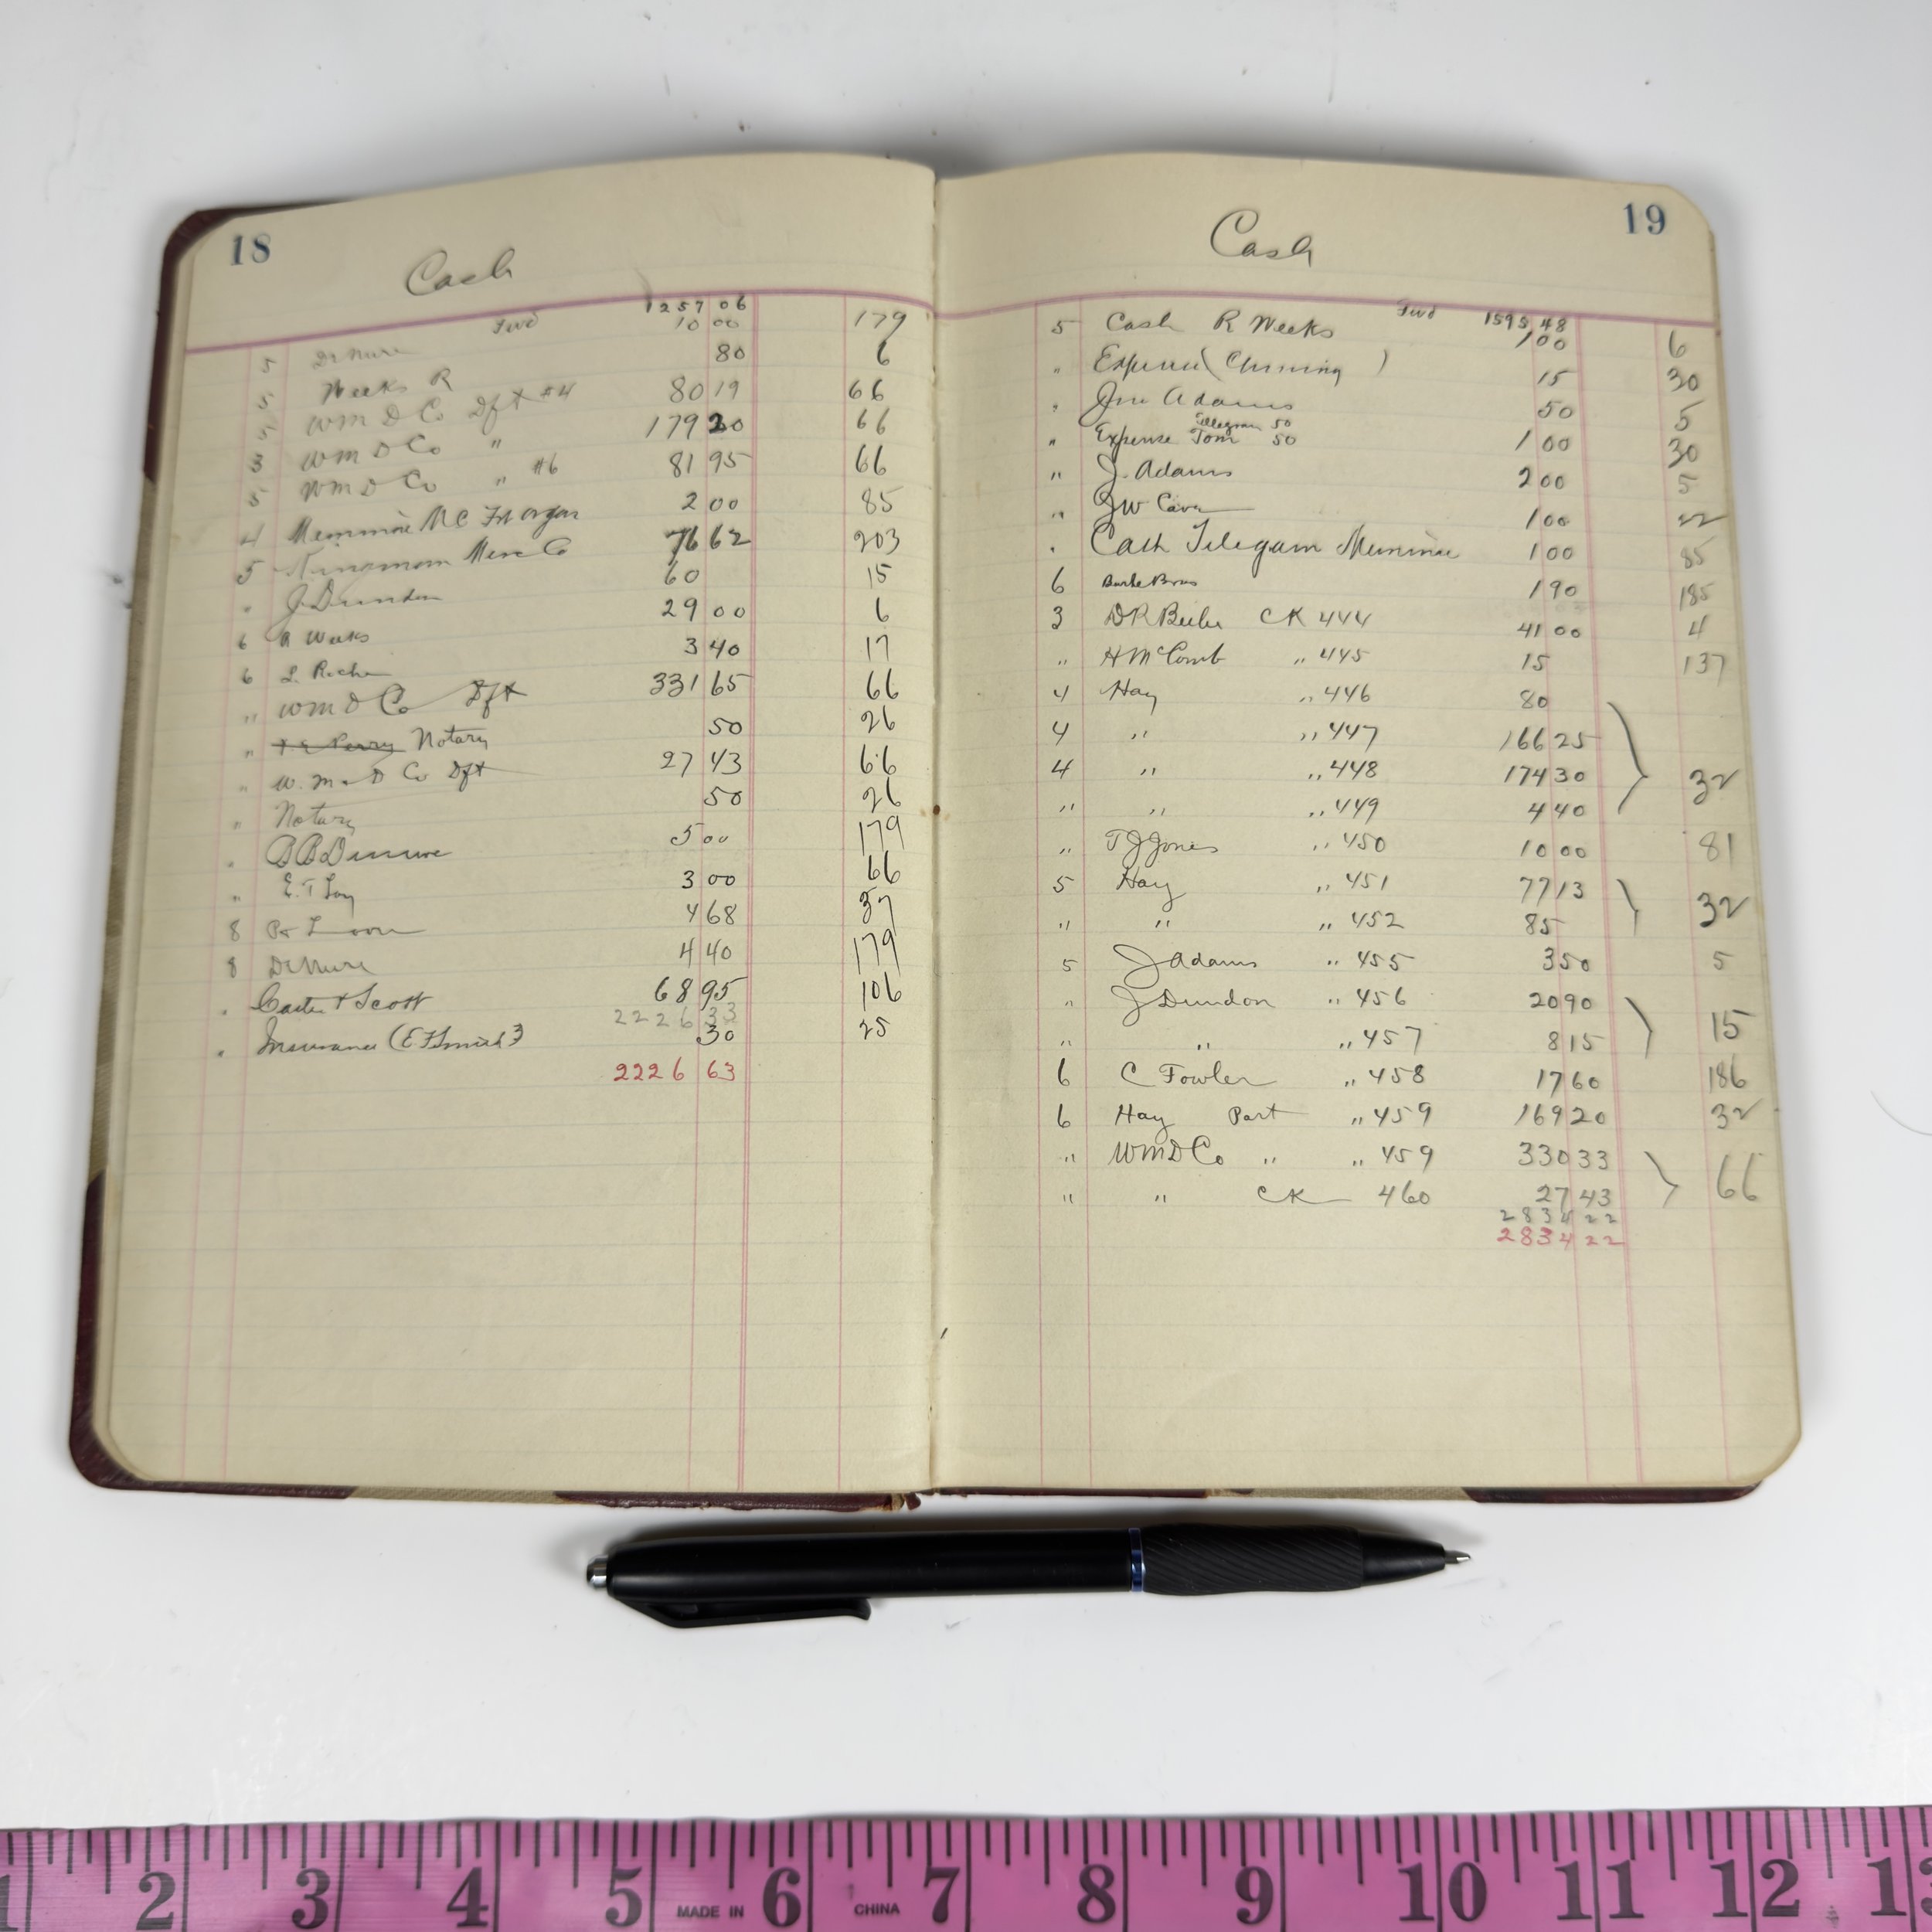 18
Cash
Fwd 1257 06
10 00 179
5 DeMure 80 6
5 Weeks R 80 19 66
5 WM D Co Dft #4 179 20 66
3 WM D Co " 81 95 66
5 WM D Co " #6 2 00 85
4 Memminie 76 62 203
5 Kingman Merc Co 60 15
" J Dundon 29 00 6
6 R Weeks 3 40 17
6 L 331 65 66
" WM D Co Dft 50 26
" Notary 27 43 66
" W. M. D Co Dft 50 26
" Notary 5 00 179
" B B Demure 3 00 66
" E. T. 4 68 37
8 4 40 179
8 DeMure 68 95 106
" Carter & Scott 2226 33
30 25
" Insurance (E F Smith)
2226 63
19
Cash
Fwd 1595 48
5 Cash R Weeks 1 00 6
" Expense ( ) 15 30
" Jno Adams 50 5
Telegram 50
" Expense Tom 50 1 00 30
" J. Adams 2 00 5
" J W Cavu 1 00 22
" Cash Telegam Memminie 1 00 85
6 Burke Bros 1 90 185
3 D R Beeler CK 444 41 00 4
" H McComb " 445 15 137
4 Hay " 446 80
4 " " 447 166 25
4 " " 448 174 30 32
" " " 449 4 40
" T J Jones " 450 10 00 81
5 Hay " 451 77 13 32
" " " 452 85
5 J Adams " 455 3 50 5
" J Dundon " 456 20 90 15
" " " 457 8 15
6 C Fowler " 458 17 60 186
6 Hay Part " 459 169 20 32
" WMDCo " " 459 330 33 66
" " CK 460 27 43
2834 22
2834 22
1 2 3 4 5 MADE IN 6 CHINA 7 8 9 10 11 12 13